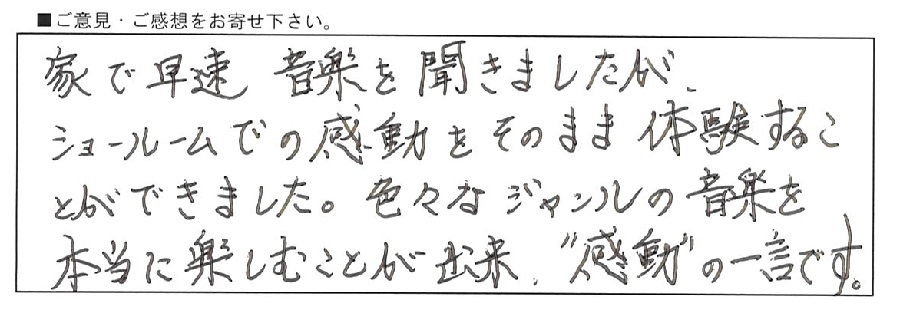 ■ご意見・ご感想をお寄せ下さい。
家で早速 音楽を聞きましたが、
ショールームでの感動をそのまま体験するこ
とができました。色々なジャンルの音楽を
本当に楽しむことが出来、“感動”の一言です。